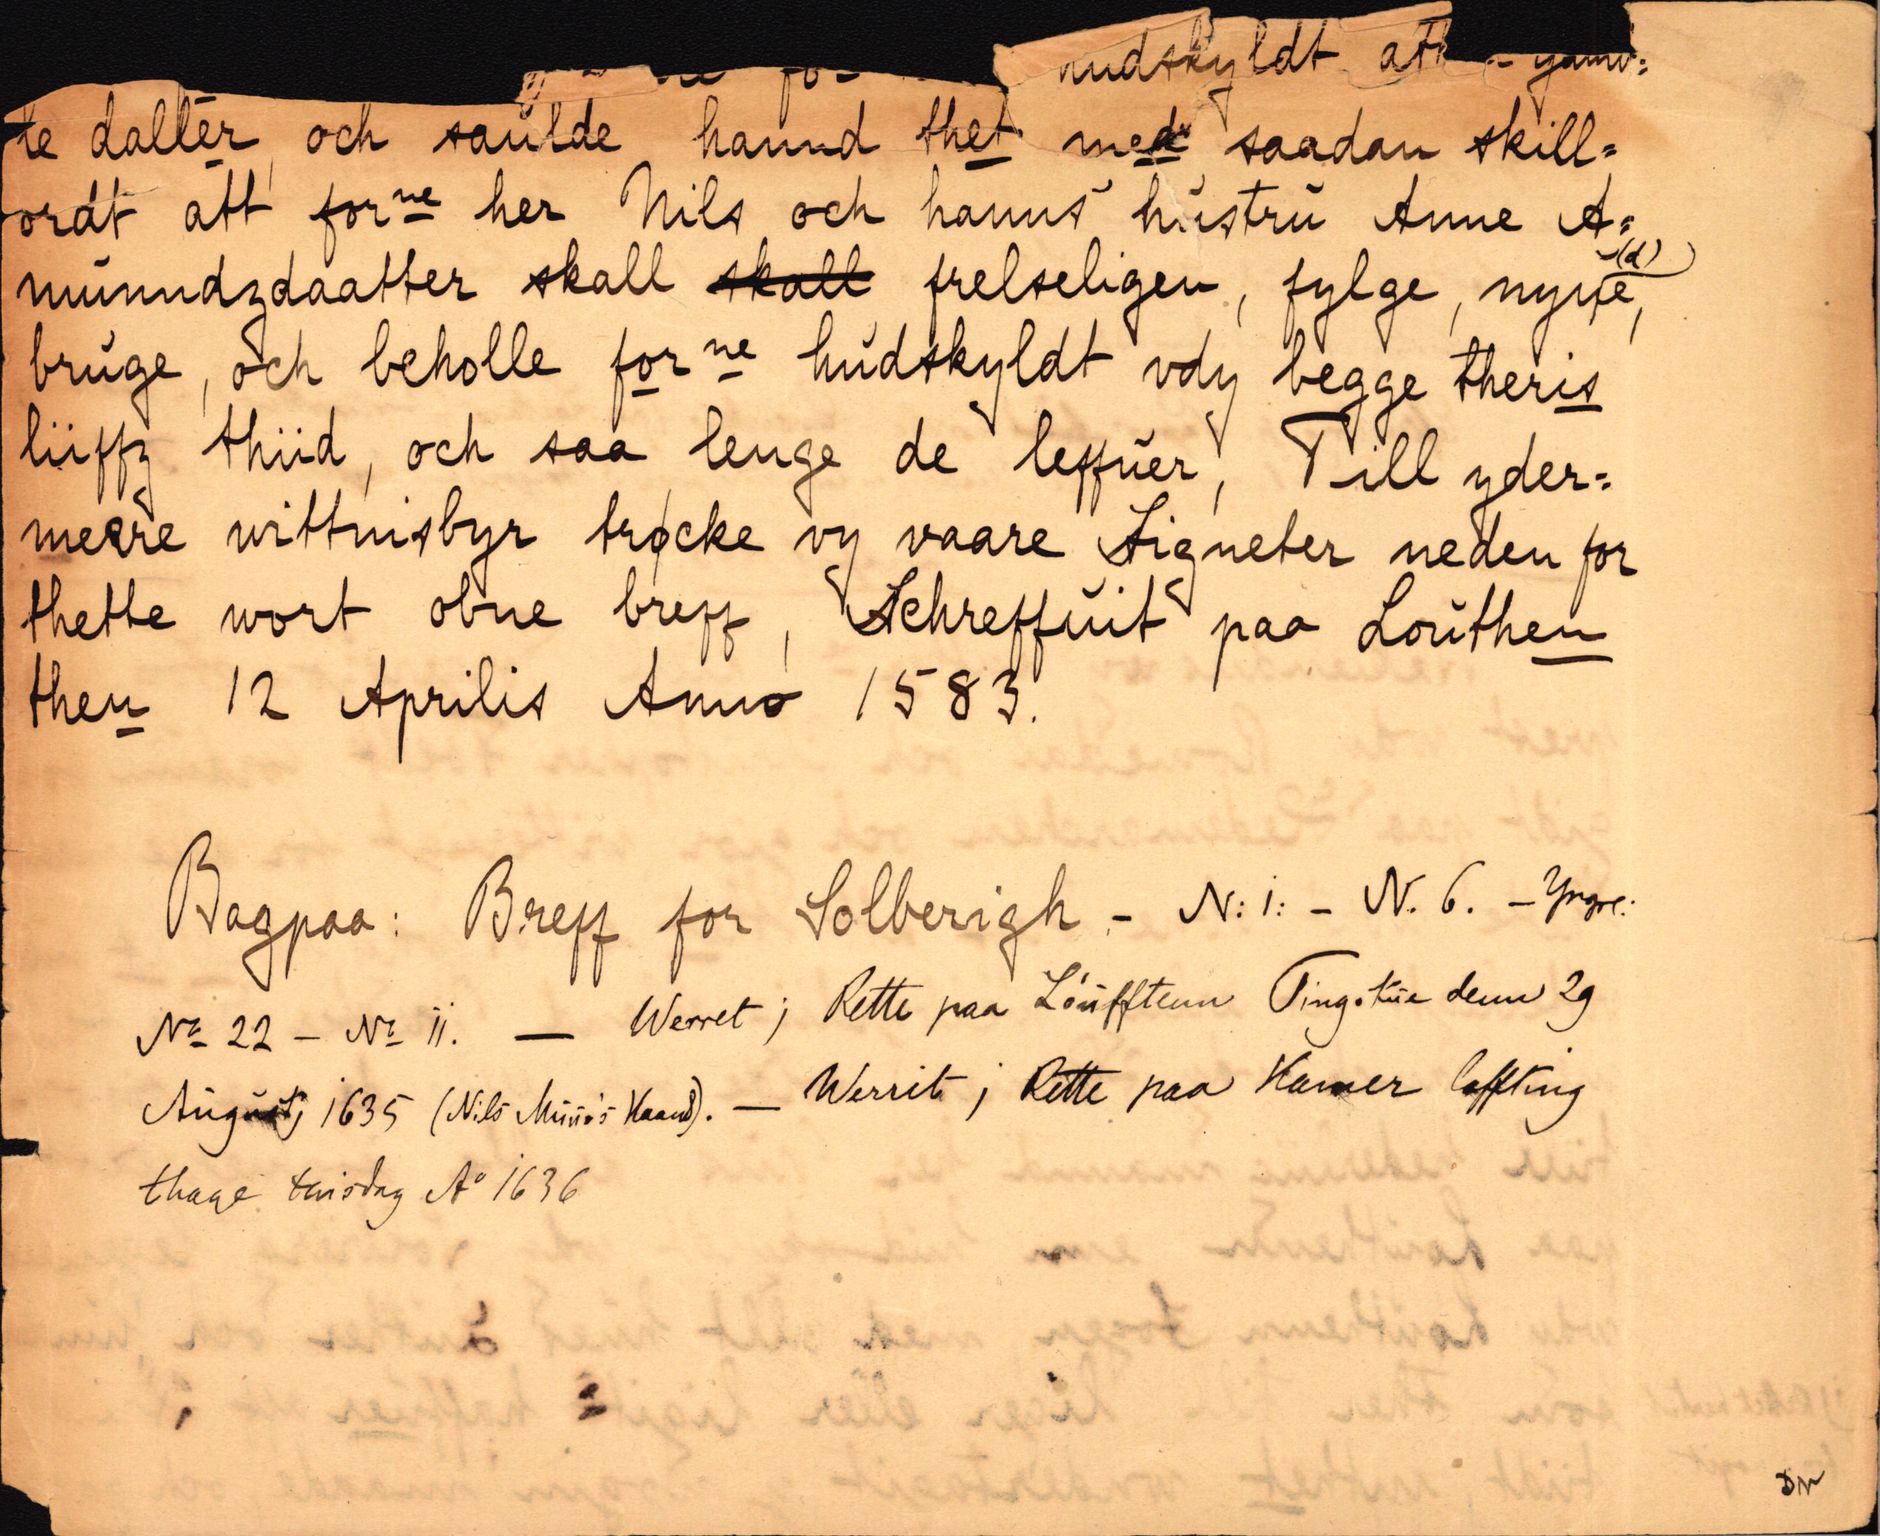 hudskyldt att
te daller, och saŭlde hannd thet med saadan skill=
ordt att forne her Nils och hanns hŭstrŭ Anne A=
mŭnndzdaatter skall skall frelseligen, fylge, nyde, (d)
brŭge, och beholle forne hŭdskyldt vdy begge theris
liiffz thiid, och saa lenge de leffŭer, Till yder=
meere wittnisbyr trøcke vy vaare Signeter neden for
thette wort obne breff, Schreffŭit paa Loŭthen
then 12 Aprilis Anno 1583.
Bagpaa: Breff for Solberigh - N: 1: - N. 6. - Yngre:
No 22 - No ii. — Werret j Rette paa Löŭfftenn Tingstŭe denn 29
Augustj 1635 (Nils Muus's Haand). — Werrit j Rette paa Hamer laffting
thage tiisdag Ao 1636
DN